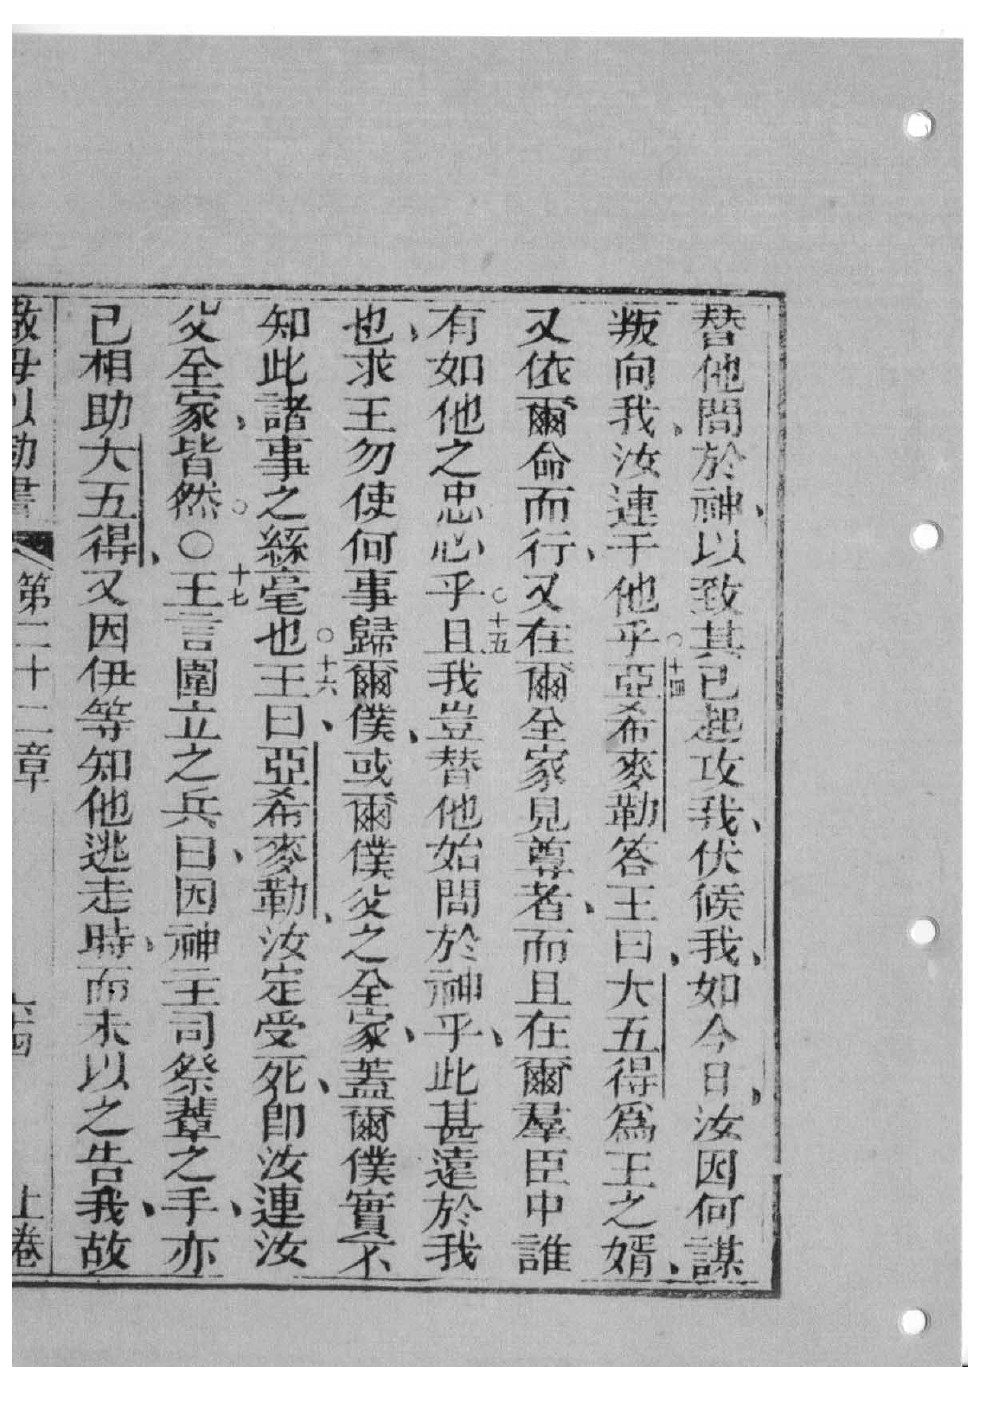 替他問於神、以致其已起攻我、伏候我、如今日、汝因何謀
叛向我、汝連于他乎○十四亞希麥勒答王曰、大五得爲王之婿、
又依爾命而行、又在爾全家見尊者、而且在爾羣臣中誰
有如他之忠心乎○十五且我豈替他始問於神乎、此甚遠於我
也、求王勿使何事歸爾僕、或爾僕父之全家、蓋爾僕實不
知此諸事之絲毫也○十六王曰、亞希麥勒、汝定受死、即汝連汝
父全家、皆然○○十七王言圍立之兵曰、因神王司祭輩之手、亦
已相助大五得、又因伊等知他逃走時、而未以之告我、故
撒母以勒書 第二十二章 上卷